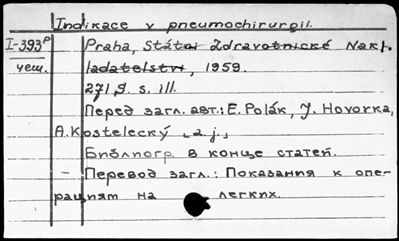 Indikace v pneumochirurgii.
I-393ᴾ Praha, Státní Zdravotnické Nakl
чеш. ladatelstvi, 1959.
271,9. s. ill.
Перед загл. авт.: E. Polák, J. Hovorka,
A. Kostelecký „a. j.„
Библиогр. в конце статей.
- Перевод загл.: Показания к опе-
рациям на легких.